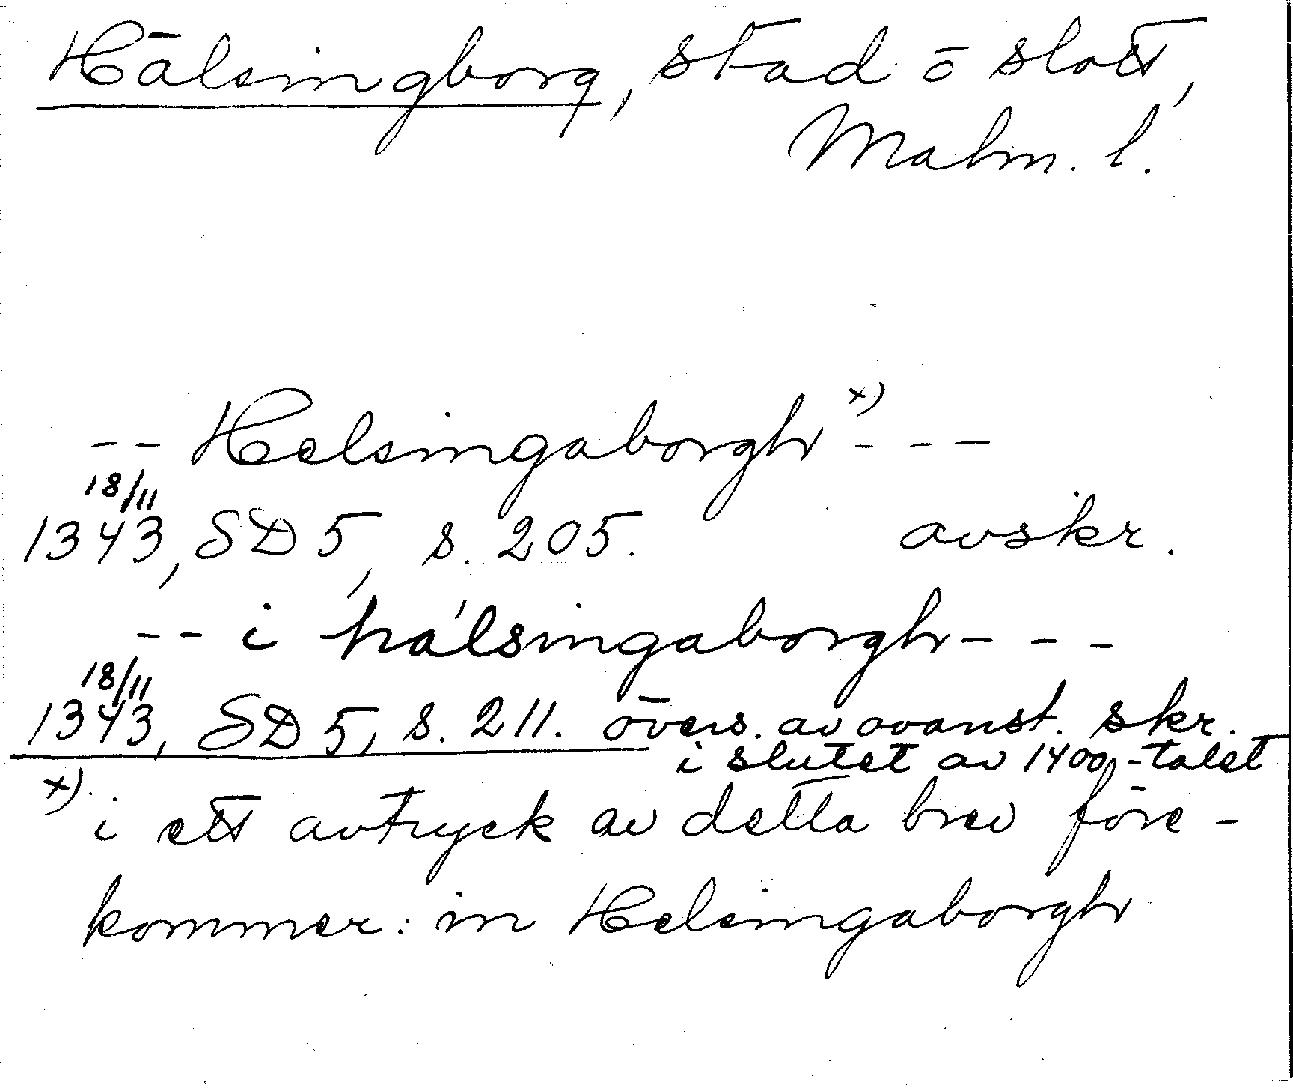 Hälsingborg, stad ö slott,
Malm. l.
-- Helsingaborgh x) ---
18/11
1343, SD 5, s. 205. avskr.
-- i hálsingaborgh ---
18/11
1343, SD 5, s. 211. övers. av ovanst. skr.
i slutet av 1400-talet
x) i ett avtryck av detta brev före-
kommer: in Helsingaborgh